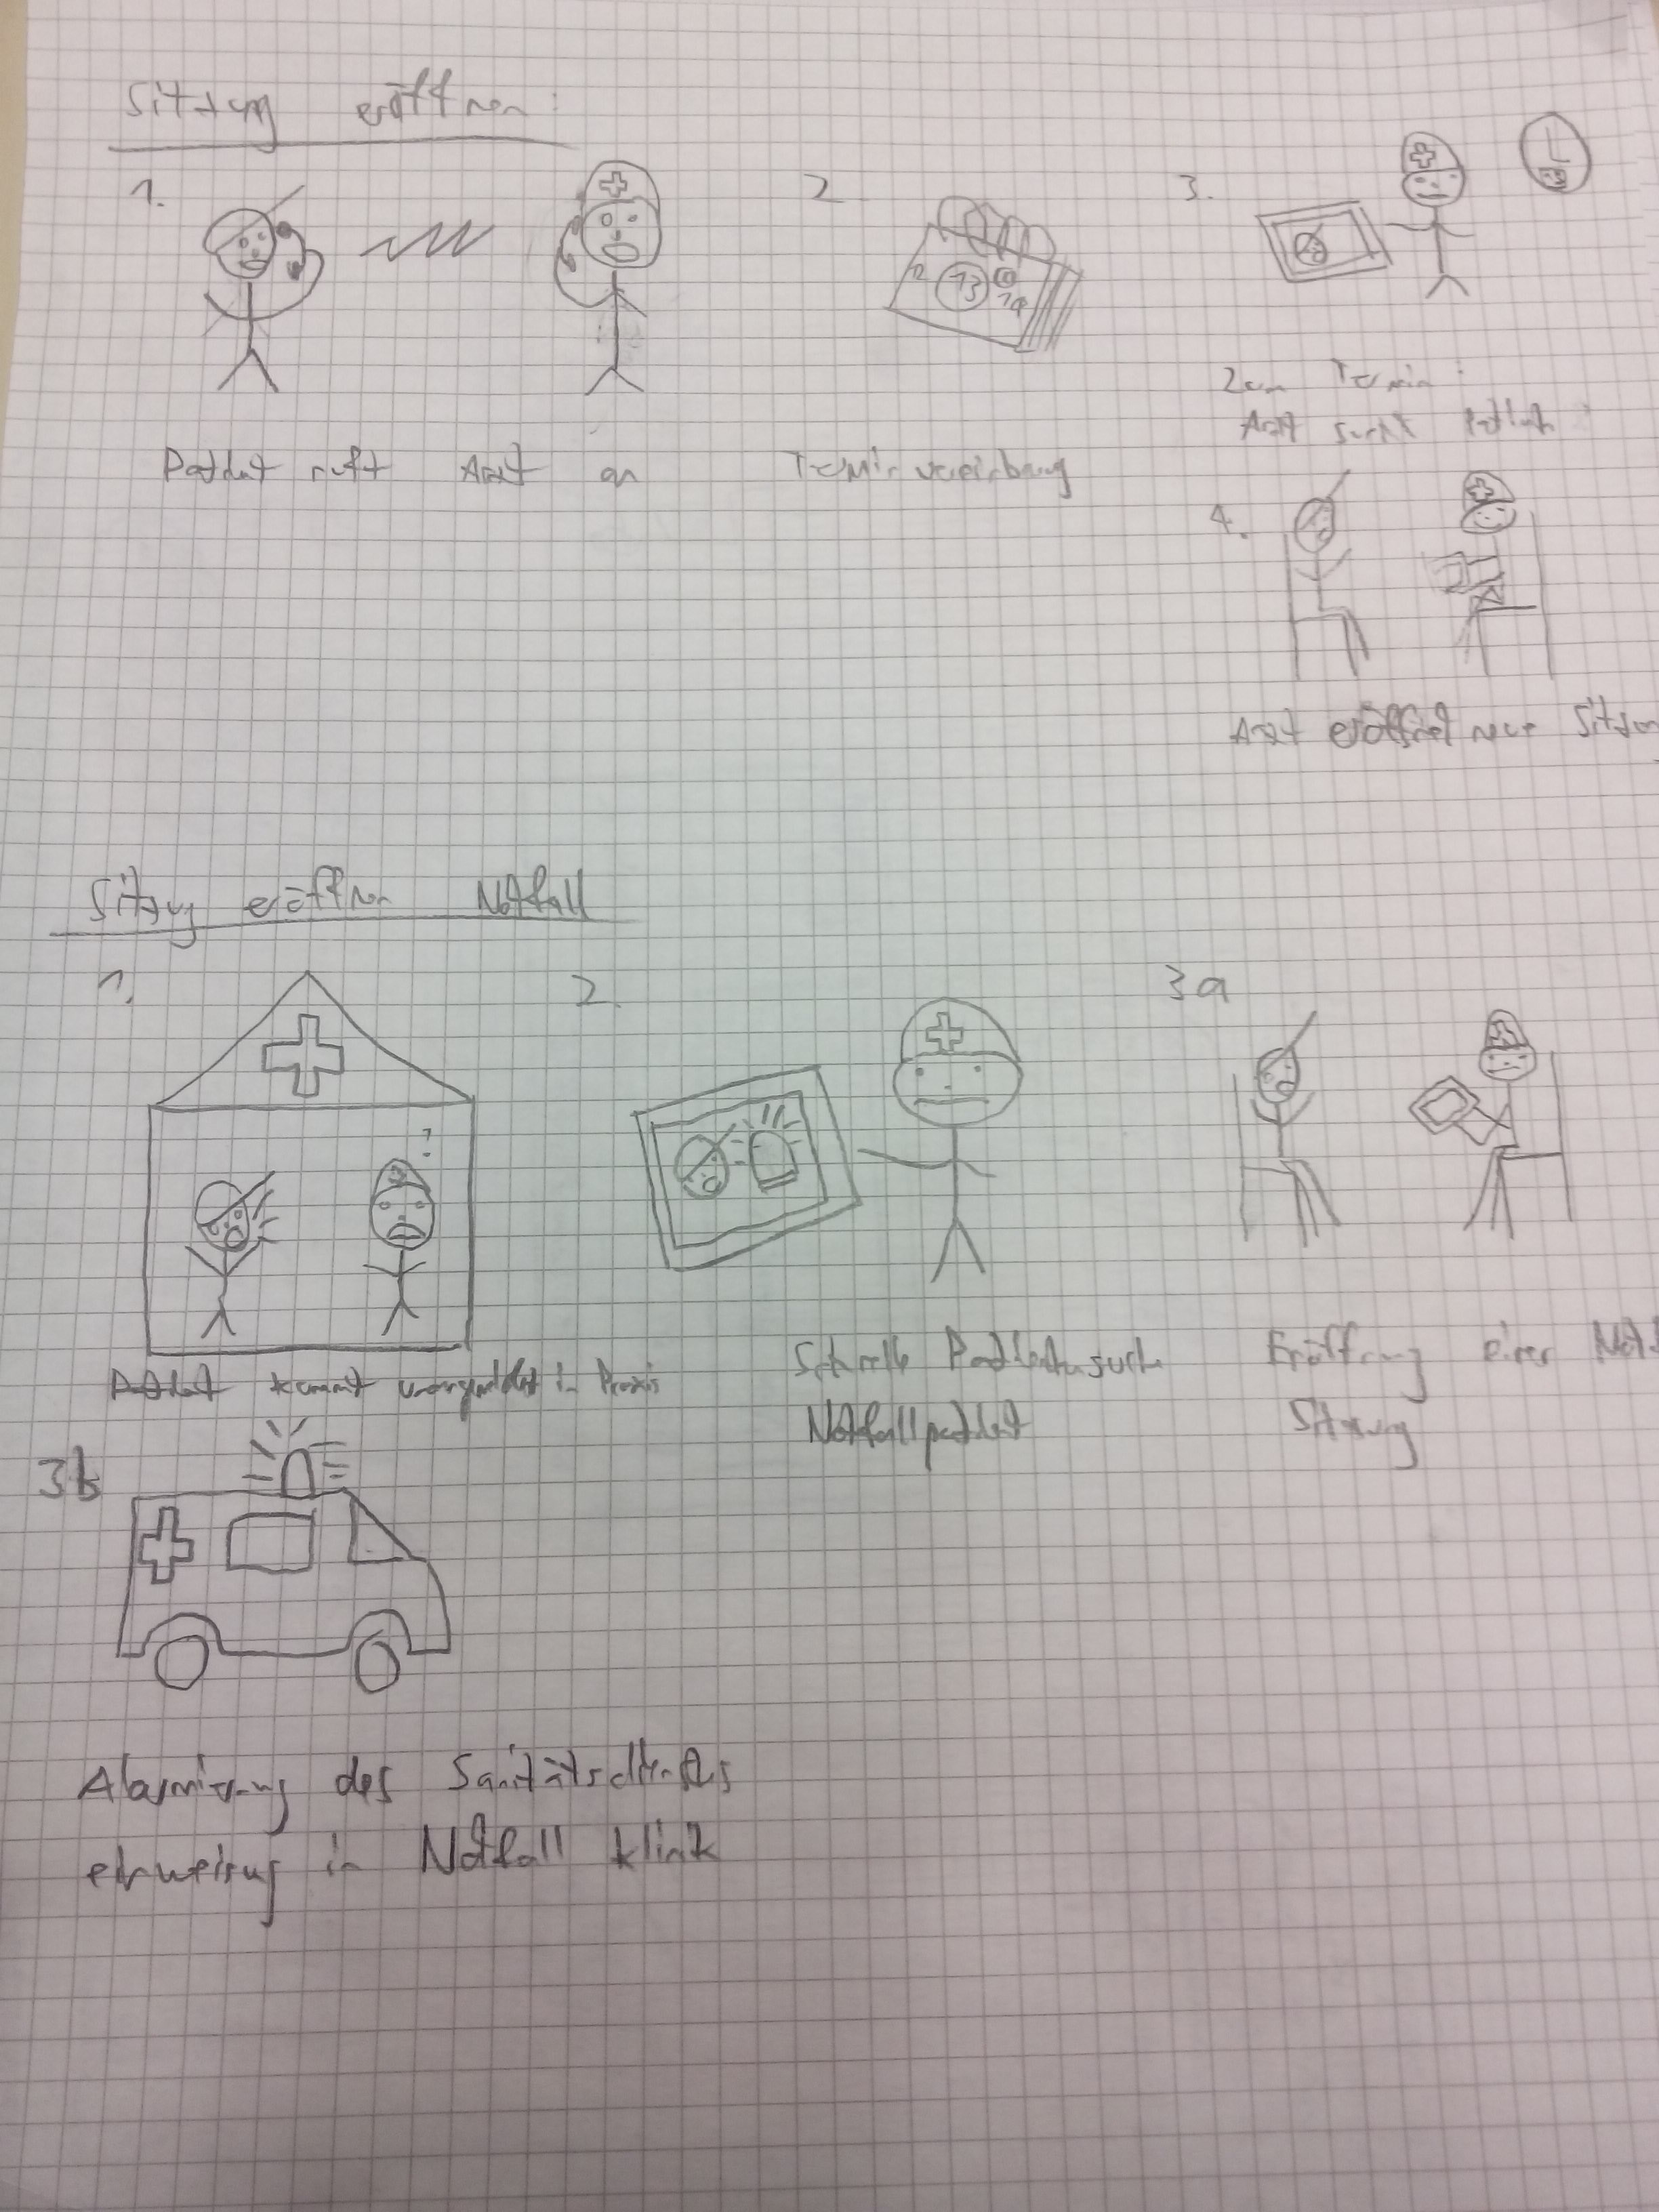 Sitzung eröffnen:
1.
2.
3.
12 13
Patient ruft Arzt an
Terminvereinbarung
Zum Termin:
Arzt sucht Patient
4.
Arzt eröffnet neue Sitzun
Sitzung eröffnen Notfall
1.
2.
3a
?
Patient kommt unangemeldet in Praxis
Schnelle Patientensuche
Notfallpatient
Eröffnung einer Not
Sitzung
3b
Alarmierung des Sanitätsdienstes
einweisung in Notfall klinik